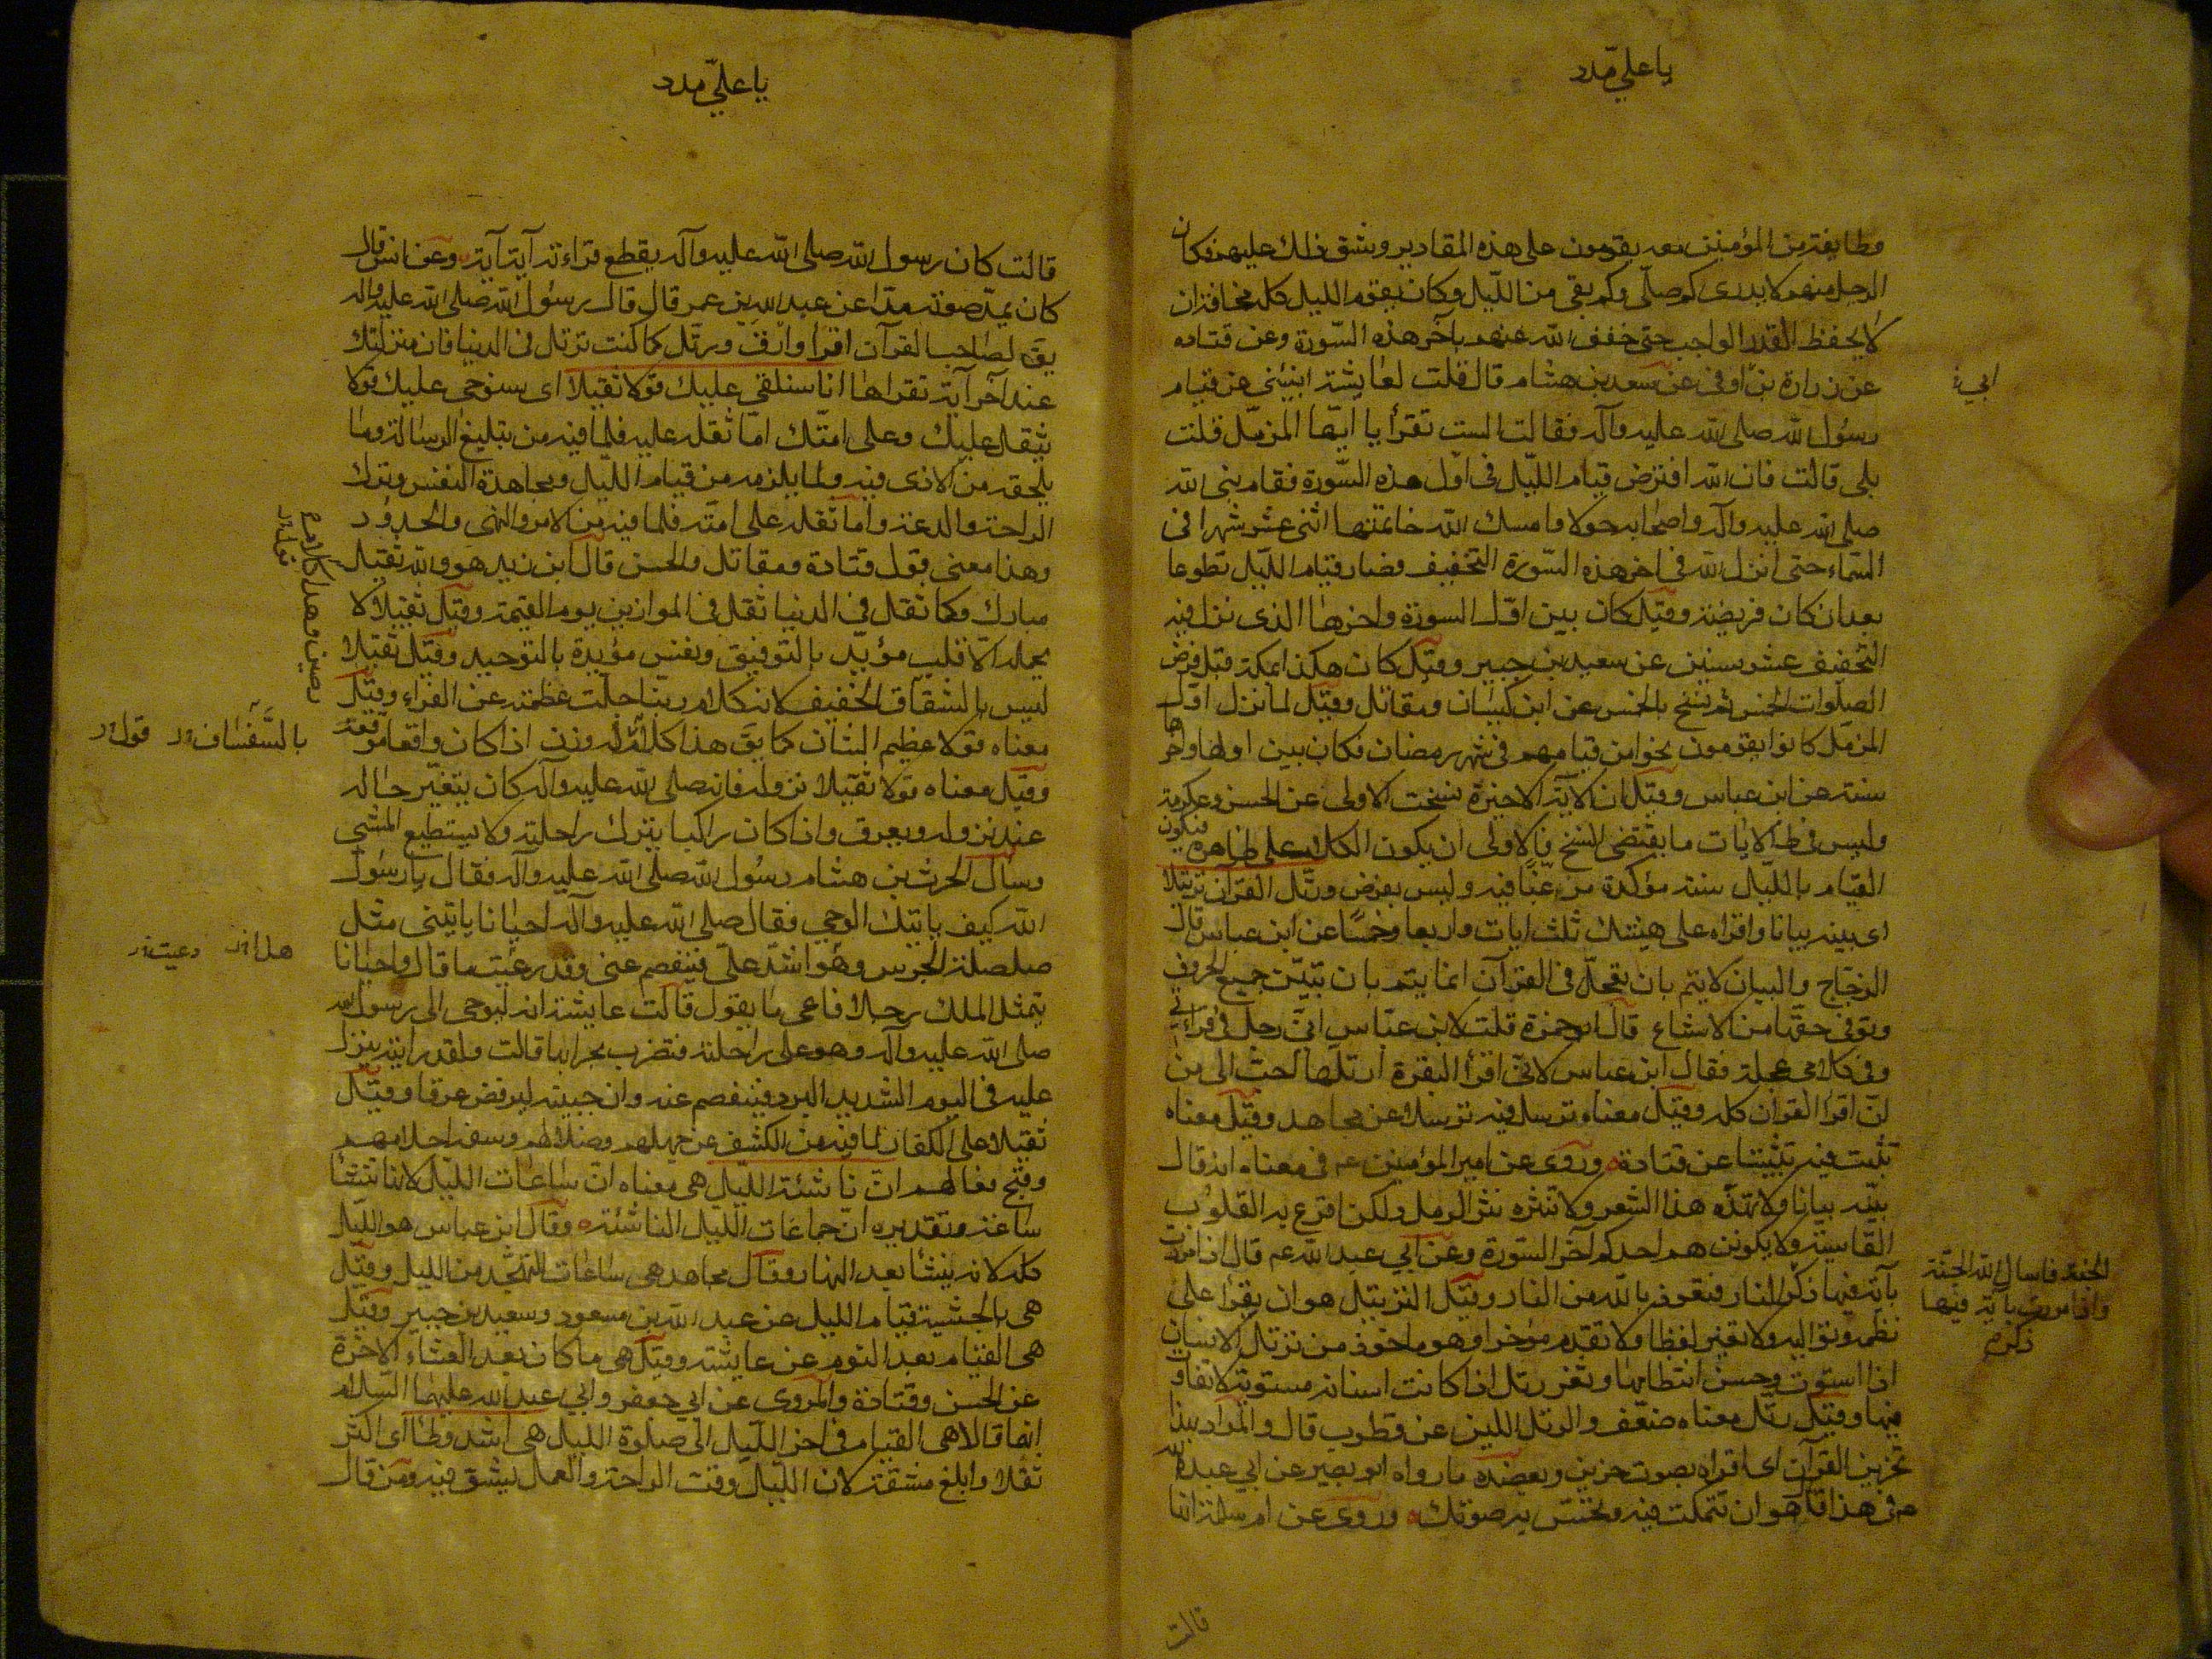 يا علي مدد
وطايفة من المؤمنين معه يقومون على هذه المقادير وشق ذلك عليهم فكان
الرجل منهم لا يدرى كم صلّى وكم بقى من اللّيل وكان يقوم الليل كله مخافة ان
لا يحفظ القدر الواجب حتى خفف الله عنهم بآخر هذه السّورة وعن قتاده
عن زرارة بن اوفى عن سعد بن هشام قال قلت لعايشة انبئنى عن قيام
ابي
رسول الله صلى الله عليه وآله فقالت الست تقرأ يا ايّها المزمّل قلت
بلى قالت فان الله افترض قيام اللّيل فى اوّل هذه السّورة فقام نبى الله
صلى الله عليه وآله واصحابه حولا وامسك الله خاتمتها اثنى عشر شهرا فى
السّماء حتى انزل الله فى اخر هذه السّورة التخفيف فصار قيام اللّيل تطوعا
بعد ان كان فريضة وقيل كان بين اوّل السورة واخرها الذى نزل فيه
التّخفيف عشر سنين عن سعيد بن جبير وقيل كان هكذا بمكة قبل فرض
الصّلوات الخمس ثم نسخ بالخمس عن ابن كيسان ومقاتل وقيل لما نزل اوّل
المزمل كانوا يقومون نحوا من قيامهم فى شهر رمضان فكان بين اولها واخرها
سنة عن ابن عباس وقيل ان الآية الاخيرة نسخت الاولى عن الحسن وعكرمة
وليس فى ظ الايات ما يقتضى النسخ فالاولى ان يكون الكلام على ظاهره فيكون
القيام بالليل سنة مؤكدة مرغّبا فيه وليس بفرض ورتّل القرآن ترتيلا
اى بينه بيانا واقراه على هينتك ثلث ايات واربعا وخمسًا عن ابن عباس قال
الزجّاج والبيان لا يتم بان يعجّل فى القرآن انما يتم بان تبيّن جميع الحروف
وتوفى حقّها من الاشباع قال ابو حمزة قلت لابن عبّاس انّى رجل فى قراءتى
وفى كلامى عجلة فقال ابن عباس لانّ اقرأ البقرة ارتّلها احبّ الى من
انّ اقرا القرآن كله وقيل معناه ترسل فيه ترسلا عن مجاهد وقيل معناه
تثبت فيه تثبيتا عن قتادة وروى عن امير المؤمنين عم فى معناه انه قال
بيّنه بيانا ولا تهذّه هذا الشعر ولا تنثره نثر الرمل ولكن اقرع به القلوب
القاسية ولا يكونن هم احدكم اخر السّورة وعن ابي عبد الله عم قال اذا مررت
بآية فيها ذكر النار فتعوذ بالله من النار وقيل الترتيل هو ان يقرأ على
الجنة فاسال الله الجنّة
واذا مررت بآية فيها
ذكر
نظمه وتواليه ولا تغير لفظا ولا تقدم مؤخرا وهو ماخوذ من ترتل الاسنان
اذا استوت وحسن انتظامها وثغر رتل اذا كانت اسنانه مستوية لا تفاوت
فيها وقيل رتّل معناه ضعّف والرتل اللين عن قطرب قال والمراد بهذا
تحزين القرآن اى اقراه بصوت حزين ويعضده ما رواه ابو بصير عن ابي عبد الله
عم فى هذا قال هو ان تتمكث فيه وتحسّن به صوتك وروى عن ام سلمة انها
قالت
يا علي مدد
قالت كان رسول الله صلى الله عليه وآله يقطع قراءته آية آية وعن انس قال
كان يمدّ صوته مدّا عن عبد الله بن عمر قال قال رسول الله صلى الله عليه واله
يقَ لصاحب القرآن اقرا وارق ورتّل كما كنت ترتل فى الدنيا فان منزلتك
عند آخر آية تقراها انا سنلقى عليك قولا ثقيلا اى سنوحى عليك قولا
يثقل عليك وعلى امتّك امّا ثقله عليه فلما فيه من تبليغ الرسالة وما
يلحقه من الاذى فيه ولما يلزمه من قيام اللّيل ومجاهدة النفس وترك
الراحة والدعة واما ثقله على امته فلما فيه من الامر والنهى والحدود
وهذا معنى قول قتادة ومقاتل والحسن قال ابن زيد هو والله ثقيل
مبارك وكما ثقل فى الدنيا ثقل فى الموازين يوم القيمة وقيل ثقيلا لا
يحمله الا قلب مؤيّد بالتوفيق ونفس مؤيدة بالتوحيد وقيل ثقيلا
ليس بالشقاق الخفيف لانه كلام ربّنا جلّت عظمته عن الفراء وقيل
معناه قولا عظيم الشان كما يقَ هذا كلام له وزن اذا كان واقعا موقعه
بالسَّفْسَاف قول
وقيل معناه قولا ثقيلا نزوله فانه صلى الله عليه وآله كان يتغيّر حاله
عند نزوله ويعرق واذا كان راكبا يترك راحلته ولا يستطيع المشى
وسال الحرث بن هشام رسول الله صلى الله عليه وآله فقال يا رسول
الله كيف ياتيك الوحى فقال صلى الله عليه وآله احيانا ياتينى مثل
صلصلة الجرس وهو اشدّ علىّ فينفصم عنى وقد وعيت ما قال واحيانا
يتمثل الملك رجلا فاعى ما يقول قالت عايشة انه ليوحى الى رسول الله
صلى الله عليه وآله وهو على راحلته فتضرب بجرانها قالت ولقد رايته ينزل
عليه فى اليوم الشديد البرد فينفصم عنه وان جبينه ليرفض عرقا وقيل
ثقيلا على الكفار لما فيه من الكشف عن جهلهم وضلالهم وسفه احلامهم
وقبح افعالهم انّ ناشئة الليل هى معناه انّ ساعات الليل لانها تنشأ
ساعة وتقديره انّ جماعات الليل الناشئة وقال ابن عباس هو الليل
كله لانه ينشأ بعد النهار وقال مجاهد هى ساعات التهجّد من الليل وقيل
هى بالحبشية قيام الليل عن عبد الله بن مسعود وسعيد بن جبير وقيل
هى القيام بعد النوم عن عايشة وقيل هى ما كان بعد العشاء الاخرة
عن الحسن وقتادة والمروى عن ابي جعفر وابي عبد الله عليهما السّلام
انهما قالا هى القيام فى اخر اللّيل الى صلوة الليل هى اشد وطأ اى اكثر
ثقلا وابلغ مشقة لان اللّيل وقت الراحة والعمل يشق فيه ومن قال